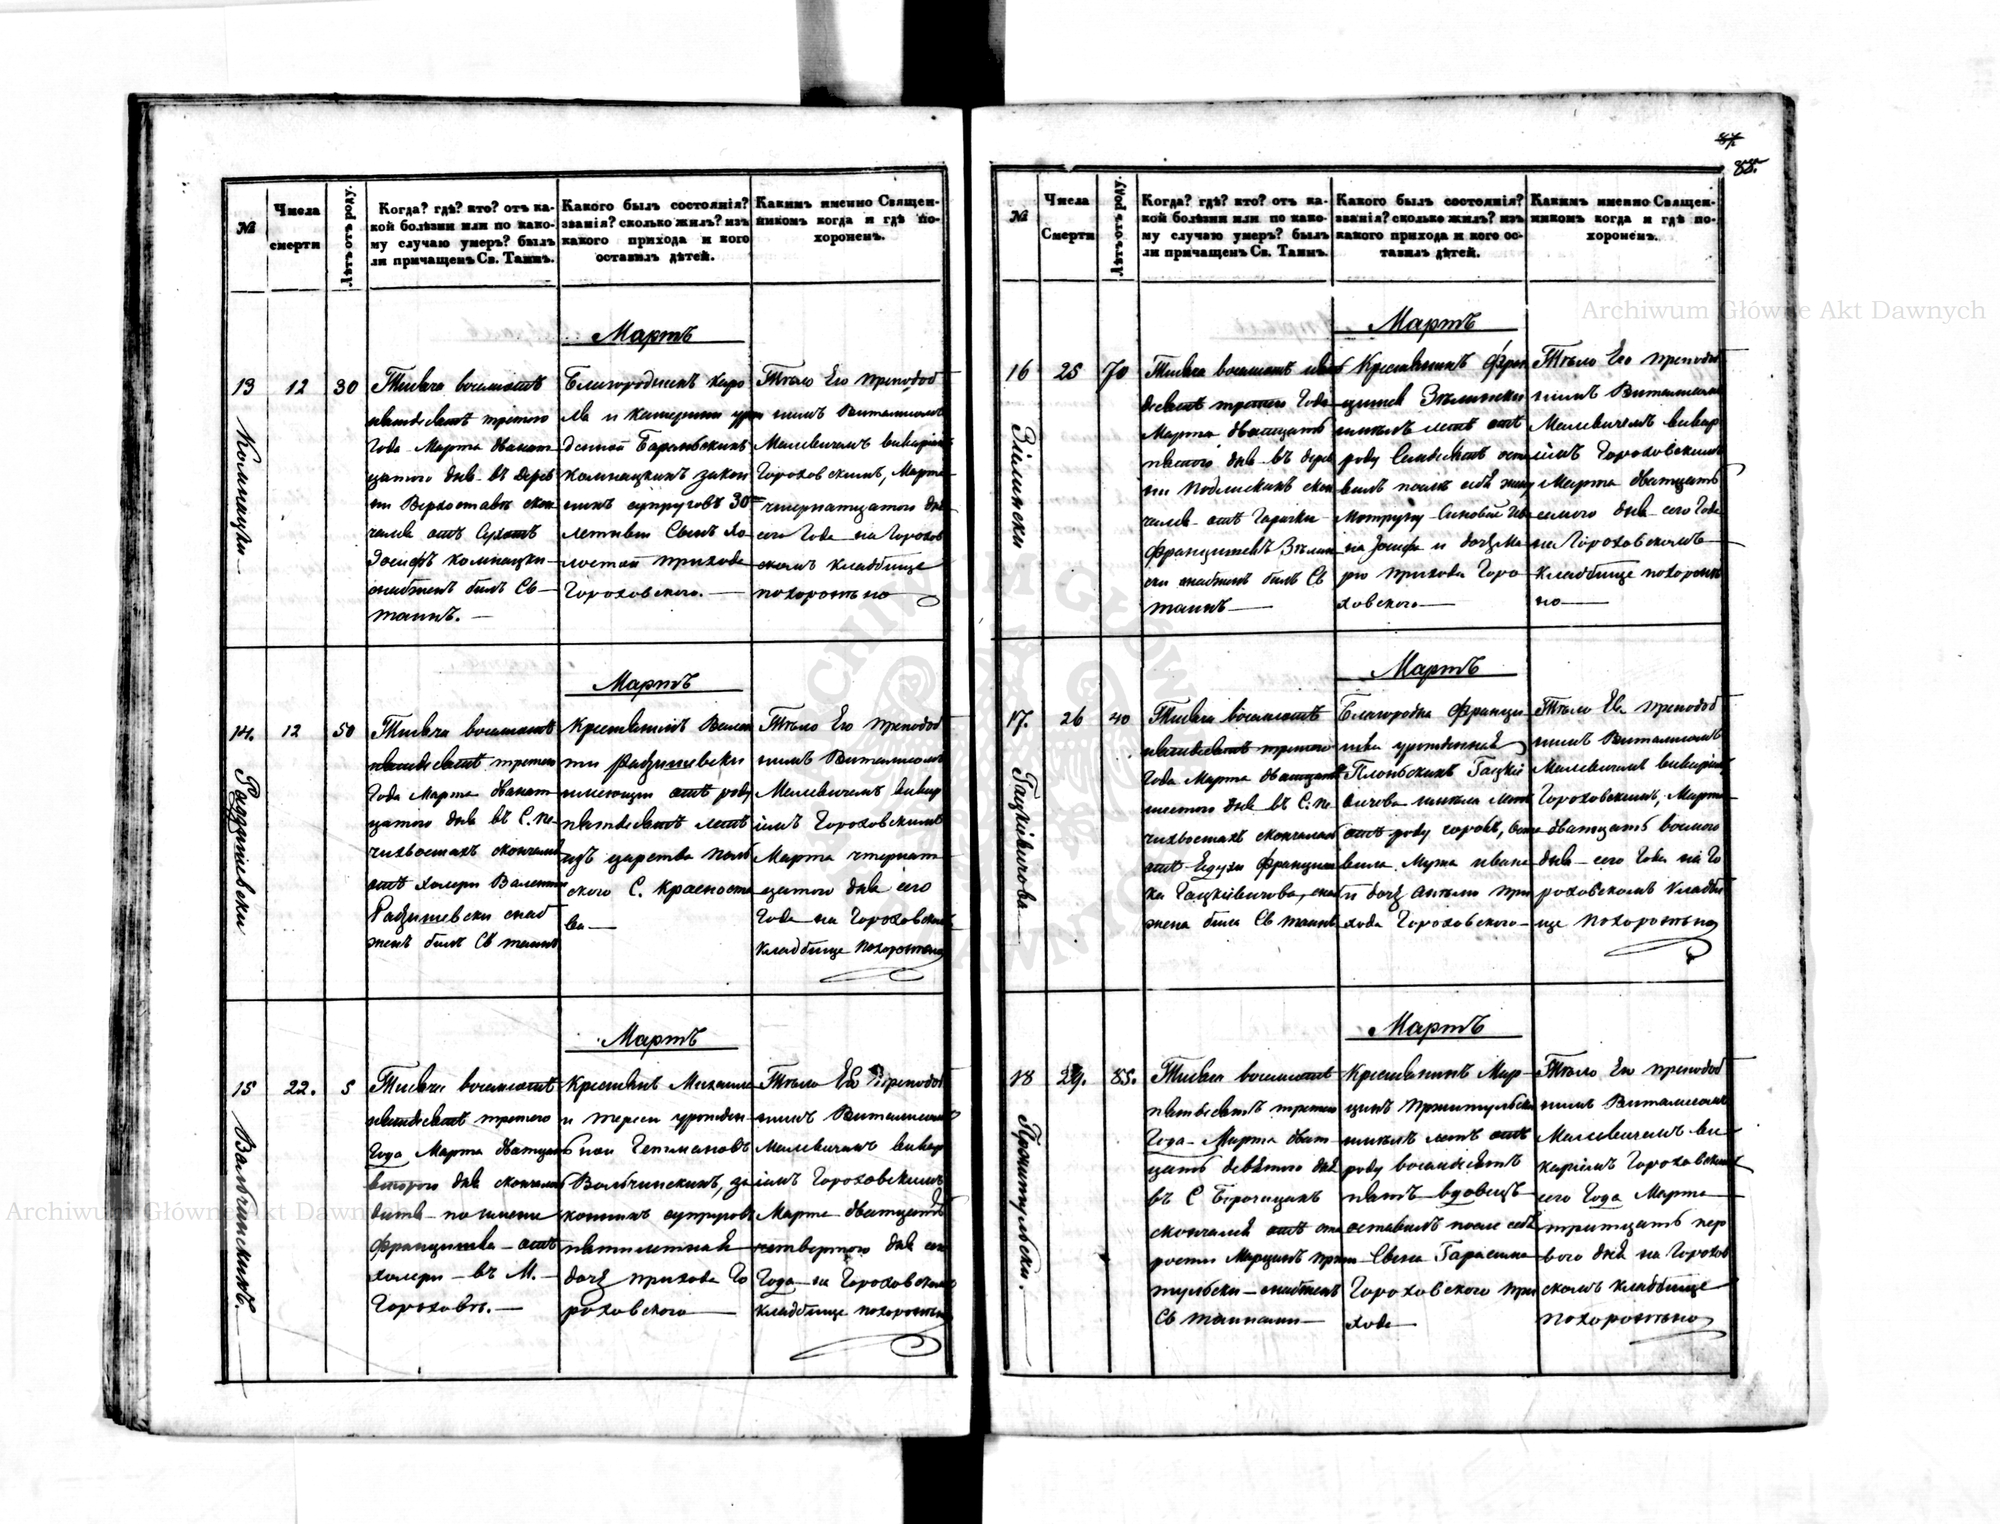 87.
85.
Archiwum Główne Akt Dawnych
№
Числа
смерти
Лѣтъ отъ роду.
Когда? гдѣ? кто? отъ ка-
кой болѣзни или по како-
му случаю умеръ? былъ
ли причащенъ Св. Таинъ.
Какого былъ состоянія?
званія? сколько жилъ? изъ
какого прихода и кого
оставилъ дѣтей.
Какимъ именно Священ-
никомъ когда и гдѣ по-
хороненъ.
Мартъ
13
12
30
Комнацки
Тысяча восемсотъ
пятдесятъ третего
Года Марта дванат
цатого дня въ дерев
ни Верхоставъ скон
чался отъ Сухотъ
Іосифъ Комнацки
снабженъ былъ Св
таинъ.
Благородныхъ Каро
ля и Катерини урож
денной
Комнацкихъ закон
нихъ супруговъ 30
летний Сынъ хо
лостой прихода
Гороховского.
Тѣло Его преподоб
нимъ Виталисомъ
Малевичемъ викарі
Гороховскимъ, Марта
четернатцатого дня
сего Года на Горохов
скомъ кладбище
похоронено
Мартъ
14.
12
50
Радзишевски
Тысяча восемсотъ
пятдесятъ третего
Года Марта дванат
цатого дня въ С. Пе
чихвостахъ скончался
отъ холери Валенти
Радзишевски снаб
женъ былъ Св таинъ
Крестянинъ Вален
ти Радзишевски
имеющи отъ роду
пятдесятъ летъ
изъ царства Поль
ского С. Красноста
ва
Тѣло Его преподоб
нимъ Виталисомъ
Малевичемъ викар
іимъ Гороховскимъ
Марта четернат
цатого дня сего
Года на Гороховском
кладбище похоронено
Мартъ
15
22.
5
Вольчинскихъ.
Тысяча восемсотъ
пятдесятъ третего
Года Марта дватцать
второго дня скончала
дитя по имени
Францишка отъ
холери въ М.
Гороховъ.
Крестянъ Михаила
и Тереси урожден
ной Гетмановъ
Вольчинскихъ, за
конныхъ супруговъ
пятилетная
дочь прихода Го
роховского
Тѣло Ея Преподоб
нимъ Виталисомъ
Малевичемъ викар
іимъ Гороховскимъ
Марта дватцать
четвертого дня сего
Года на Гороховском
кладбище похоронено
№
Числа
Смерти
Лѣтъ отъ роду.
Когда? гдѣ? кто? отъ ка-
кой болѣзни или по како-
му случаю умеръ? былъ
ли причащенъ Св. Таинъ.
Какого былъ состоянія?
званія? сколько жилъ? изъ
какого прихода и кого ос-
тавилъ дѣтей.
Какимъ именно Священ-
никомъ когда и гдѣ по-
хороненъ.
Мартъ
16
25
70
Зілински
Тысяча восемсотъ пят
десятъ третего Года
Марта дватцать
пятого дня въ дерев
ни Подлискахъ скон
чался отъ Горячки
Францишекъ Зѣлин
ски снабженъ былъ Св
таинъ
Крестянинъ Фран
цишек Зѣлински
имелъ летъ отъ
роду Семдесятъ оста
вилъ после себѣ жену
Мотруну Синовье Ива
на Іосифа и дочь Ма
рію прихода Горо
ховского
Тѣло Его преподоб
нимъ Виталисомъ
Малевичемъ викар
іимъ Гороховскимъ
Марта дватцать
семого дня сего Года
на Гороховскомъ
кладбище похороне
но
Мартъ
17.
26
40
Гацкѣвичова
Тысяча восемсотъ
пятдесятъ третого
Года Марта дватцать
шестого дня въ С. Пе
чихвостахъ скончалась
отъ Франциш
ка Гацкѣвичова, снаб
жена была Св таинъ
Благородна Францы
шка урожденная
Гацкѣ
вичова имѣла летъ
отъ роду сорокъ, оста
вила Мужа Ивана
и дочь Антоли при
хода Гороховского
Тѣло Ея преподоб
нимъ Виталисомъ
Малевичемъ викаріи
Гороховскимъ, Марта
дватцать восмого
дня сего Года на Го
роховскомъ Кладби
ще похоронено
Мартъ
18
29.
85.
Пржитульски.
Тысяча восемсотъ
пятдесятъ третого
Года Марта дват
цать девятого дня
въ С
скончался отъ ста
рости Марцинъ Пржи
тульски снабженъ
Св таинами
Крестянинъ Мар
цинъ Пржитульски
имелъ летъ отъ
роду восемдесятъ
пять вдовецъ
оставилъ после себѣ
Сына Гарасима
Гороховского при
хода
Тѣло Его преподоб
нимъ Виталисомъ
Малевичемъ ви
каріимъ Гороховским
сего Года Марта
тритцать пер
вого дня на Горохов
скомъ кладбище
похоронено
Archiwum Główne Akt Dawnych